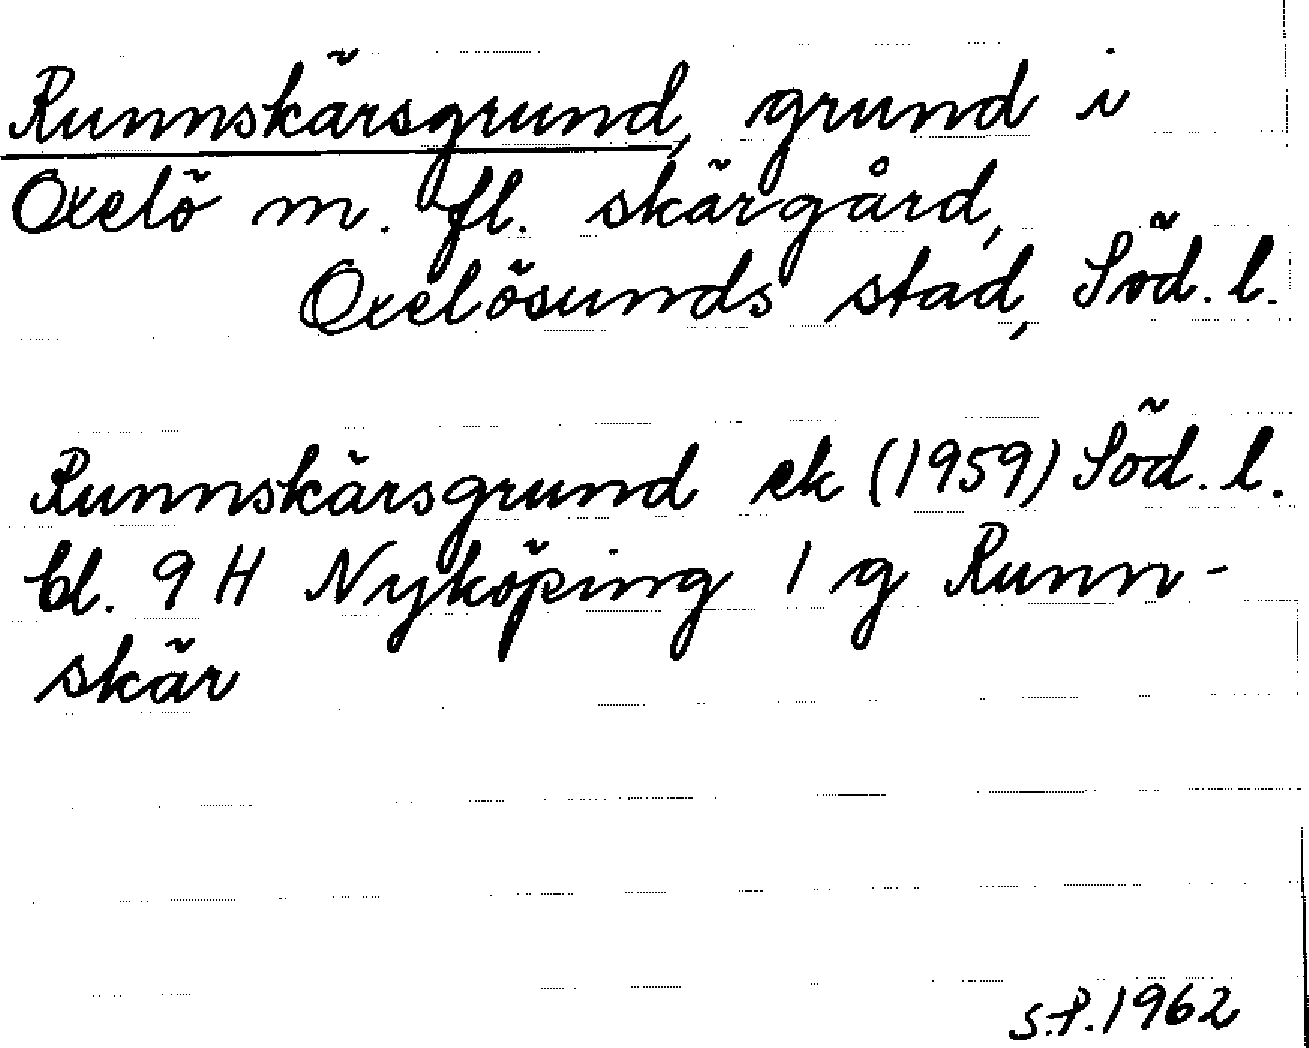 Runnskärsgrund, grund i
Oxelö m. fl. skärgård,
Oxelösunds stad, Söd. l.
Runnskärsgrund ek (1959) Söd. l.
bl. 9 H Nyköping 1 g Runn-
skär
S.P. 1962